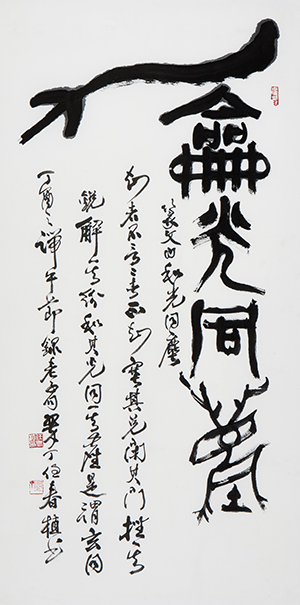 龢光同塵
篆文曰和光同塵
知者不言言者不知塞其兌閉其門挫其
銳解其紛和其光同其塵是謂玄同
丁酉之端午節錄老子句